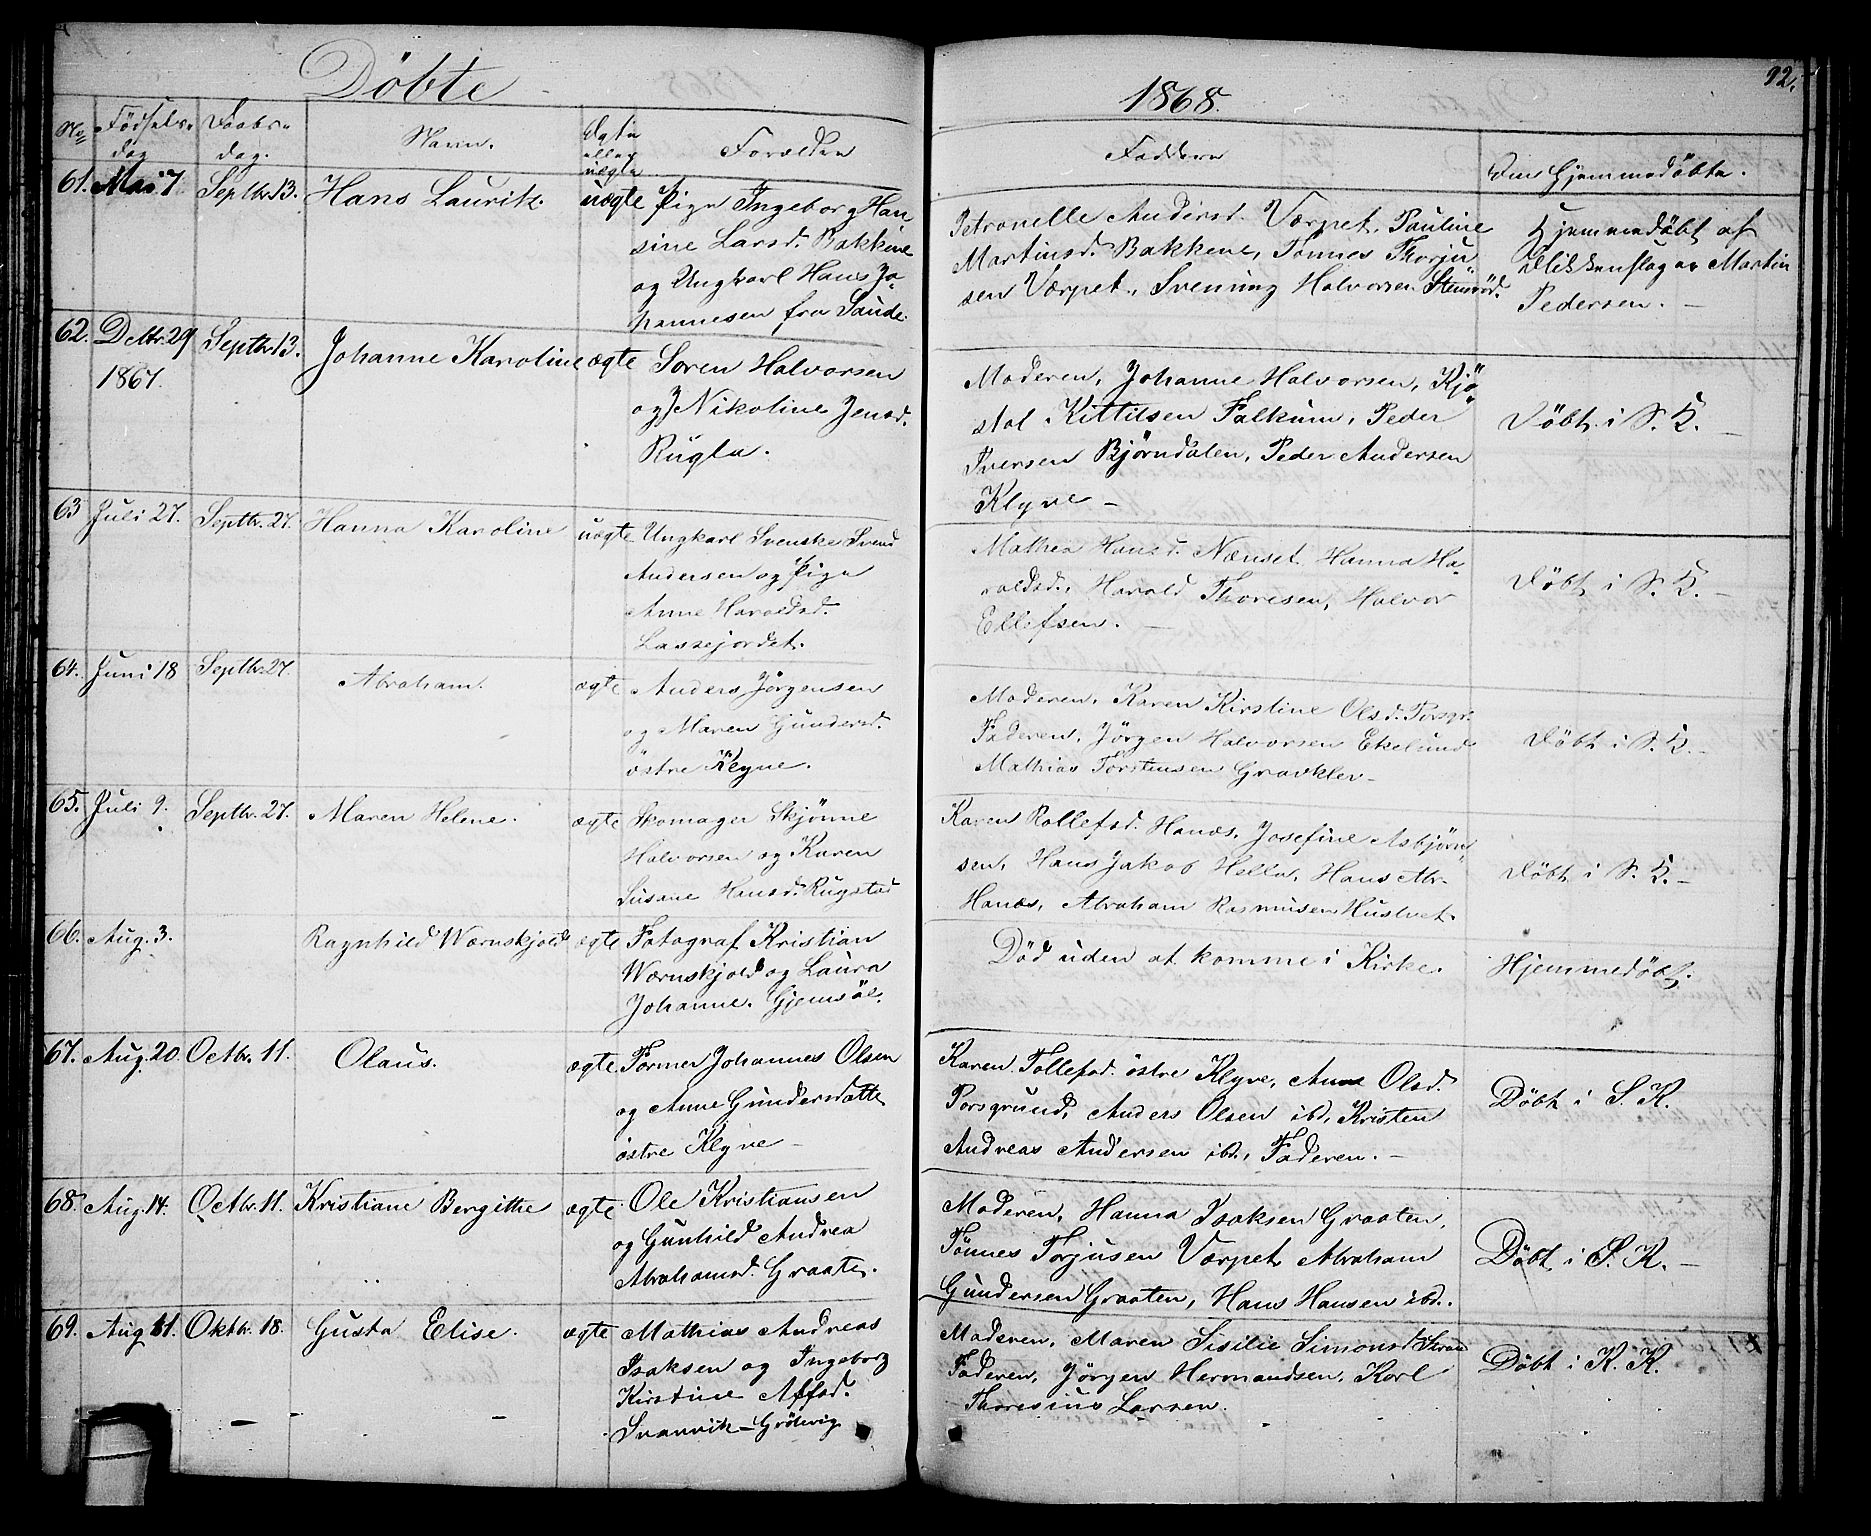 Döbte
1868.
92.
No
Födsels-
dag
Daabs-
dag.
Navn.
Ægte
eller
uægte
Forældre
Faddere
Om Hjemmedöbte.
61. Mai 7. Septbr. 13. Hans Laurik. uægte Pige Ingeborg Han-
sine Larsd. Bakkene
og Ungkarl Hans Jo-
hannesen fra Saude.
Petronelle Andersd. Værpet, Pauline
Martinsd. Bakkene, Tönnes Thorju
sen Værpet, Svenung Halvorsen Stensrød.
Hjemmedöbt af
Martin
Pedersen. —
62. Decbr. 29 Septbr. 13. Johanne Karoline ægte Soren Halvorsen
1867.
og Nikoline Jensd.
Rugla.
Moderen, Johanne Halvorsen, Kjö-
stol Kittilsen Falkum, Peder
Iversen Björndalen, Peder Andersen
Klyve —
Döbt i S. K. —
63 Juli 27. Septbr. 27. Hanna Karoline uægte Ungkarl Svenske Svend
Andersen og Pige
Anne Haroldsd.
Lassejordet.
Mathea Hansd. Nænset, Hanna Ha-
roldsd., Harold Thoresen, Halvor
Ellefsen. —
Döbt i S. K. —
64. Juni 18 Septbr. 27. Abraham. ægte Anders Jörgensen
og Maren Gundersd.
östre Klyve.
Moderen, Karen Kirstine Olsd. Porsgr.
Faderen, Jörgen Halvorsen Ekelund
Mathias Torstensen Gravklev—
Döbt i S. K. —
65. Juli 9. Septbr. 27. Maren Helene. ægte Skomager Skjönne
Halvorsen og Karen
Susane Hansd. Rugstad
Karen Rollefsd. Hanæs, Josefine Asbjörn-
sen, Hans Jakob Hella, Hans Abr.
Hanæs, Abraham Rasmusen Hustvet.
Döbt i S. K. —
66. Aug. 3. Ragnhild Wærnskjold ægte Fotograf Kristian
Wærnskjold og Laura
Johanne Gjemsöe.
Död uden at komme i Kirke.
Hjemmedöbt.
67. Aug. 20. Octbr. 11. Olaus. ægte Former Johannes Olsen
og Anne Gundersdatte
östre Klyve —
Karen Tollefsd. östre Klyve, Anne Olsd.
Porsgrund, Anders Olsen ibd, Kristen
Andreas Andersen ibd., Faderen. —
Döbt i S. K.
68. Aug. 14. Octbr. 11. Kristiane Bergithe ægte Ole Kristiansen
og Gunhild Andrea
Abrahamsd. Graaten.
Moderen, Hanna Isaksen Graaten,
Tönnes Torjusen Værpet, Abraham
Gundersen Graaten, Hans Hansen ibd.
Döbt i S. K. —
69. Aug 11. Oktbr. 18. Gusta Elise. ægte Mathias Andreas
Isaksen og Ingeborg
Kirstine
Svanvik — Grötevig
Moderen, Maren Sisilie Simonsd.
Faderen, Jörgen Hermandsen, Karl
Thoresius Larsen.
Döbt i K. K.